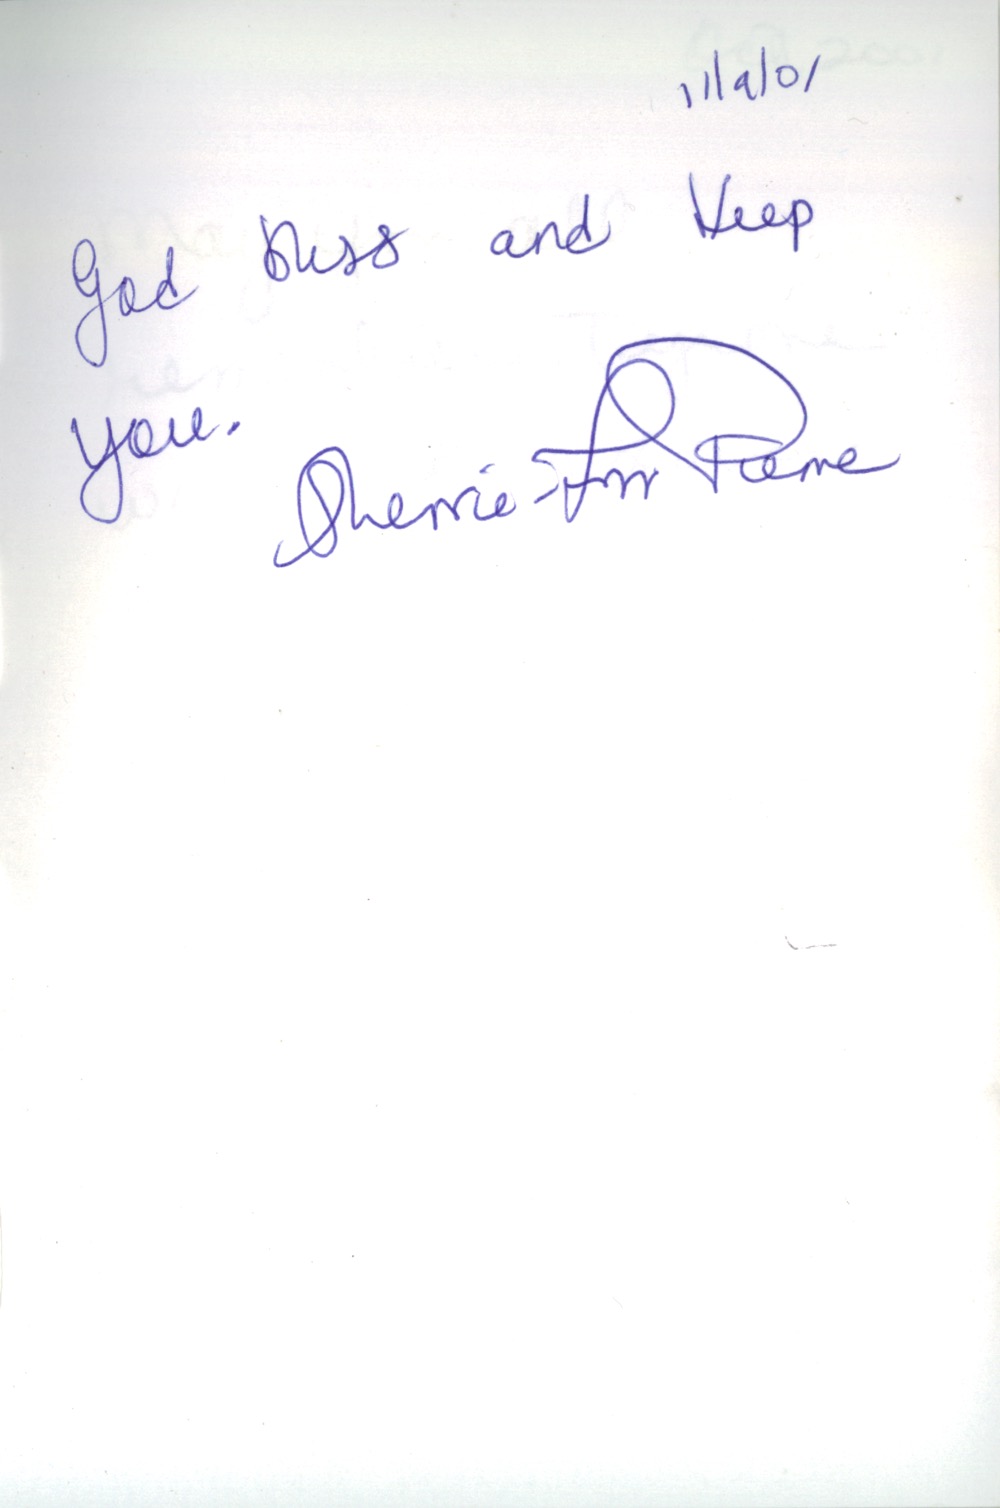 11/9/01
God bless and Keep
you.
Sherrie-Ann